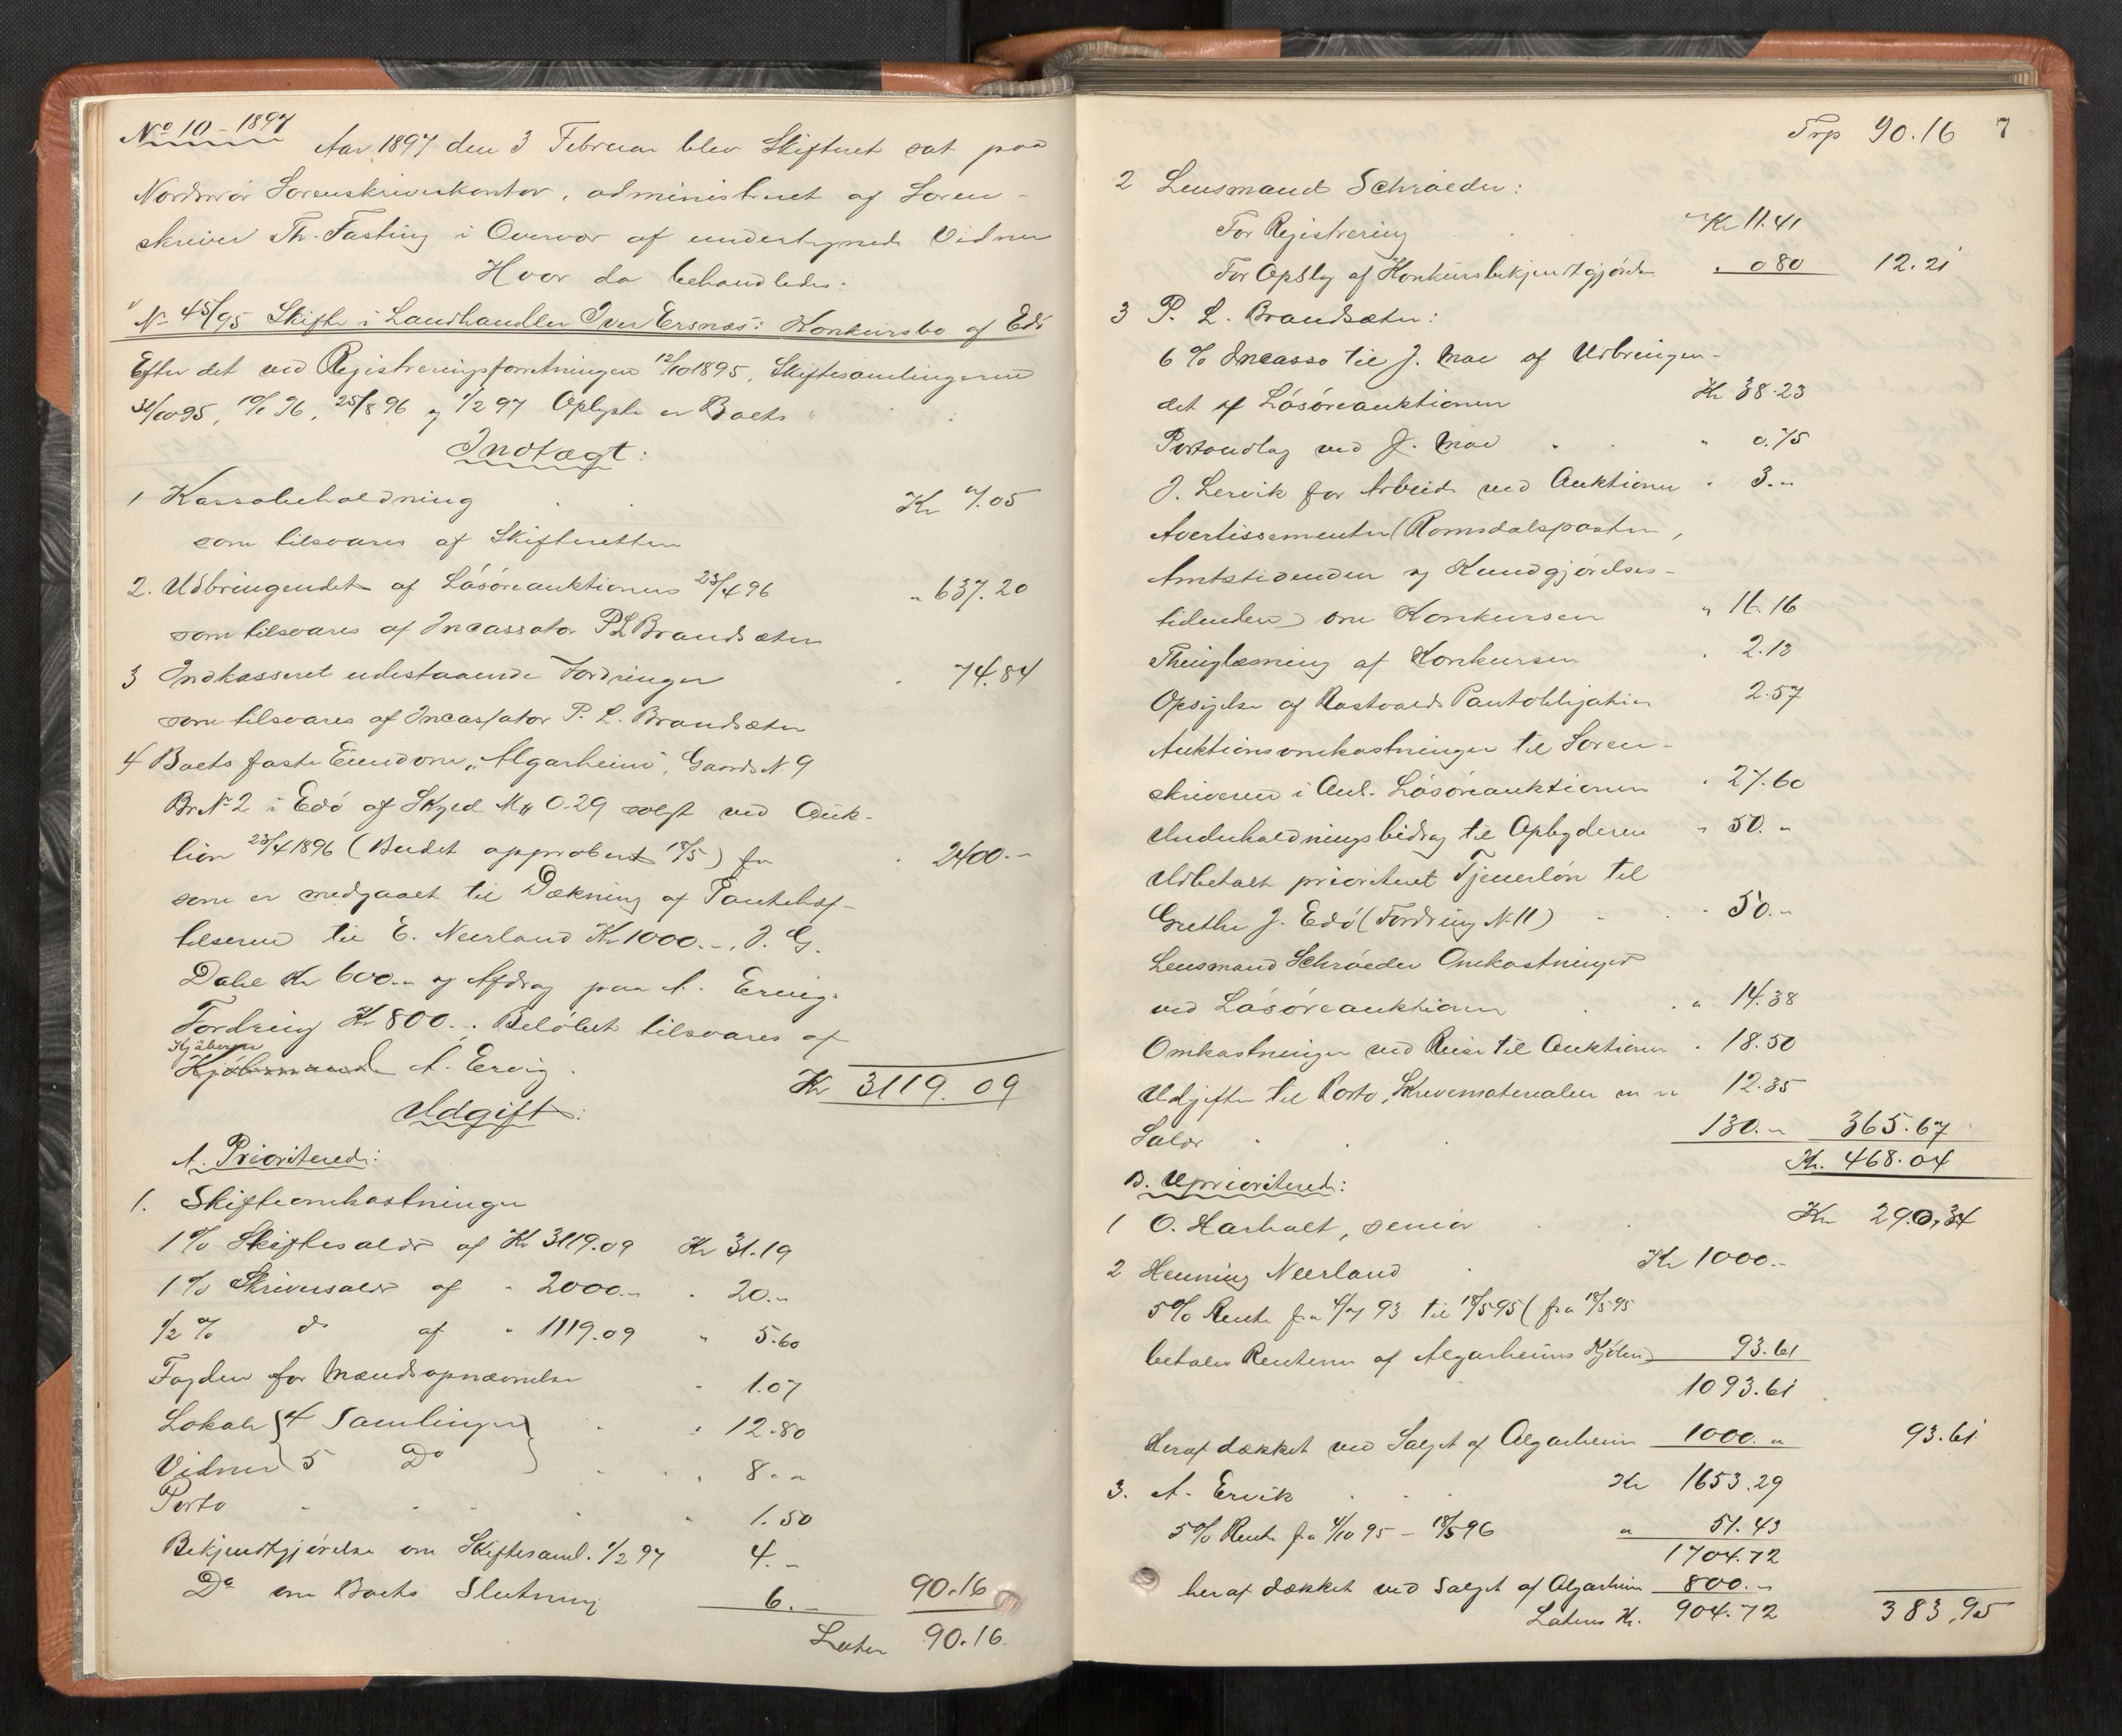 No 10 - 1897
Aar 1897 den 3 Februar blev Skifteret sat paa
Nordmør Sorenskriverkontor, administreret af Soren-
skriver Th. Fasting i Overvær af undertegnede Vidner
Hvor da behandledes:
No 45/95 Skifte i Landhandler Iver Ersnæs: Konkursbo af Edø
Efter det ved Registreringsforretningen 12/10 1895, Skiftesamlingerne
96, 25/8 96 og 1/2 97 Oplyste er Boets
Indtægt:
1 Kassabeholdning Kr 7.05
som tilsvares af Skifteretten
2. Udbringendet af Løsøreauktionen 23/4 96 " 637.20
som tilsvares af Incassator P L Brandsæter
3 Indkasseret udestaaende Fordringer " 74.84
som tilsvares af Incassator P. L. Brandsæter
4 Boets faste Eiendom "Algarheim", Gaards N. 9
Br No 2 i Edø af Skyld Mk 0.29 solgt ved Auk-
tion 23/4 1896 (Budet approberet 18/5) for " 2400.-
som er medgaaet til Dækning af Pantehæf-
telserne til E. Neerland Kr 1000.-, J. G.
Dahl Kr 600.- og Afdrag paa A. Ervig:
Fordring Kr 800.-. Beløbet tilsvares af
Kjøberen
Kjøbmand A. Ervig. Kr 3119.09
Udgift:
A. Prioriterede:
1. Skifteomkostninger
1 % Skiftesalær af Kr 3119.09 Kr 31.19
1 % Skriversalær af " 2000.- " 20.-
1/2 % do af " 1119.09 " 5.60
Fogden for Mændsopnævnelse " 1.07
Lokale { 4 Samlinger } " 12.80
Vidner { 5 Do } " 8.-
Porto " 1.50
Bekjendtgjørelse om Skiftesaml. 1/2 97 4.-
Do om Boets Slutning 6.- 90.16
Later 90.16
Trp 90.16 7
2 Lensmand Schrøeder:
For Registrering Kr 11.41
For Opslag af Konkursbekjendtgjørelse " 0 80 12.21
3 P. L. Brandsæter:
6 % Incasso til J. Moe af Udbringen-
det af Løsøreauktionen Kr 38.23
Portoudlæg ved J. Moe " 0.75
J. Lervik for Arbeide ved Auktionen " 3.-
Avertissementer (Romsdalsposten,
Amtstidenden og Kundgjørelses-
tidenden) om Konkursen " 16.16
Thinglæsning af Konkursen " 2.13
Opsigelse af Rostvolds Pantobligation 2.57
Auktionsomkostninger til Soren-
skriveren i Anl. Løsøreauktionen " 27.60
Underholdningsbidrag til Opbyderen " 50.-
Udbetalt prioriteret Tjenerløn til
Grethe J. Edø (Fordring N. 11) " 50.-
Lensmand Schrøeder Omkostninger
ved Løsøreauktionen " 14.38
Omkostninger ved Reise til Auktionen " 18.50
Udgifter til Porto, Skrivematerialier m m 12.35
Salær 130.- 365.67
Kr. 468.04
B. Uprioriterede:
1 O. Harholt, senior Kr 290,34
2 Henning Neerland Kr 1000.-
5 % Rente fra 4/7 93 til 18/5 95 (fra 18/5 95
betales Renterne af Algarheims Kjøber) 93.61
1093.61
Heraf dækket ved Salget af Algarheim 1000.- 93.61
3. A. Ervik Kr 1653.29
5 % Rente fra 4/10 95 - 18/5 96 " 51.43
1704.72
heraf dækket ved Salget af Algarheim 800.-
Lateris Kr. 904.72 383,95